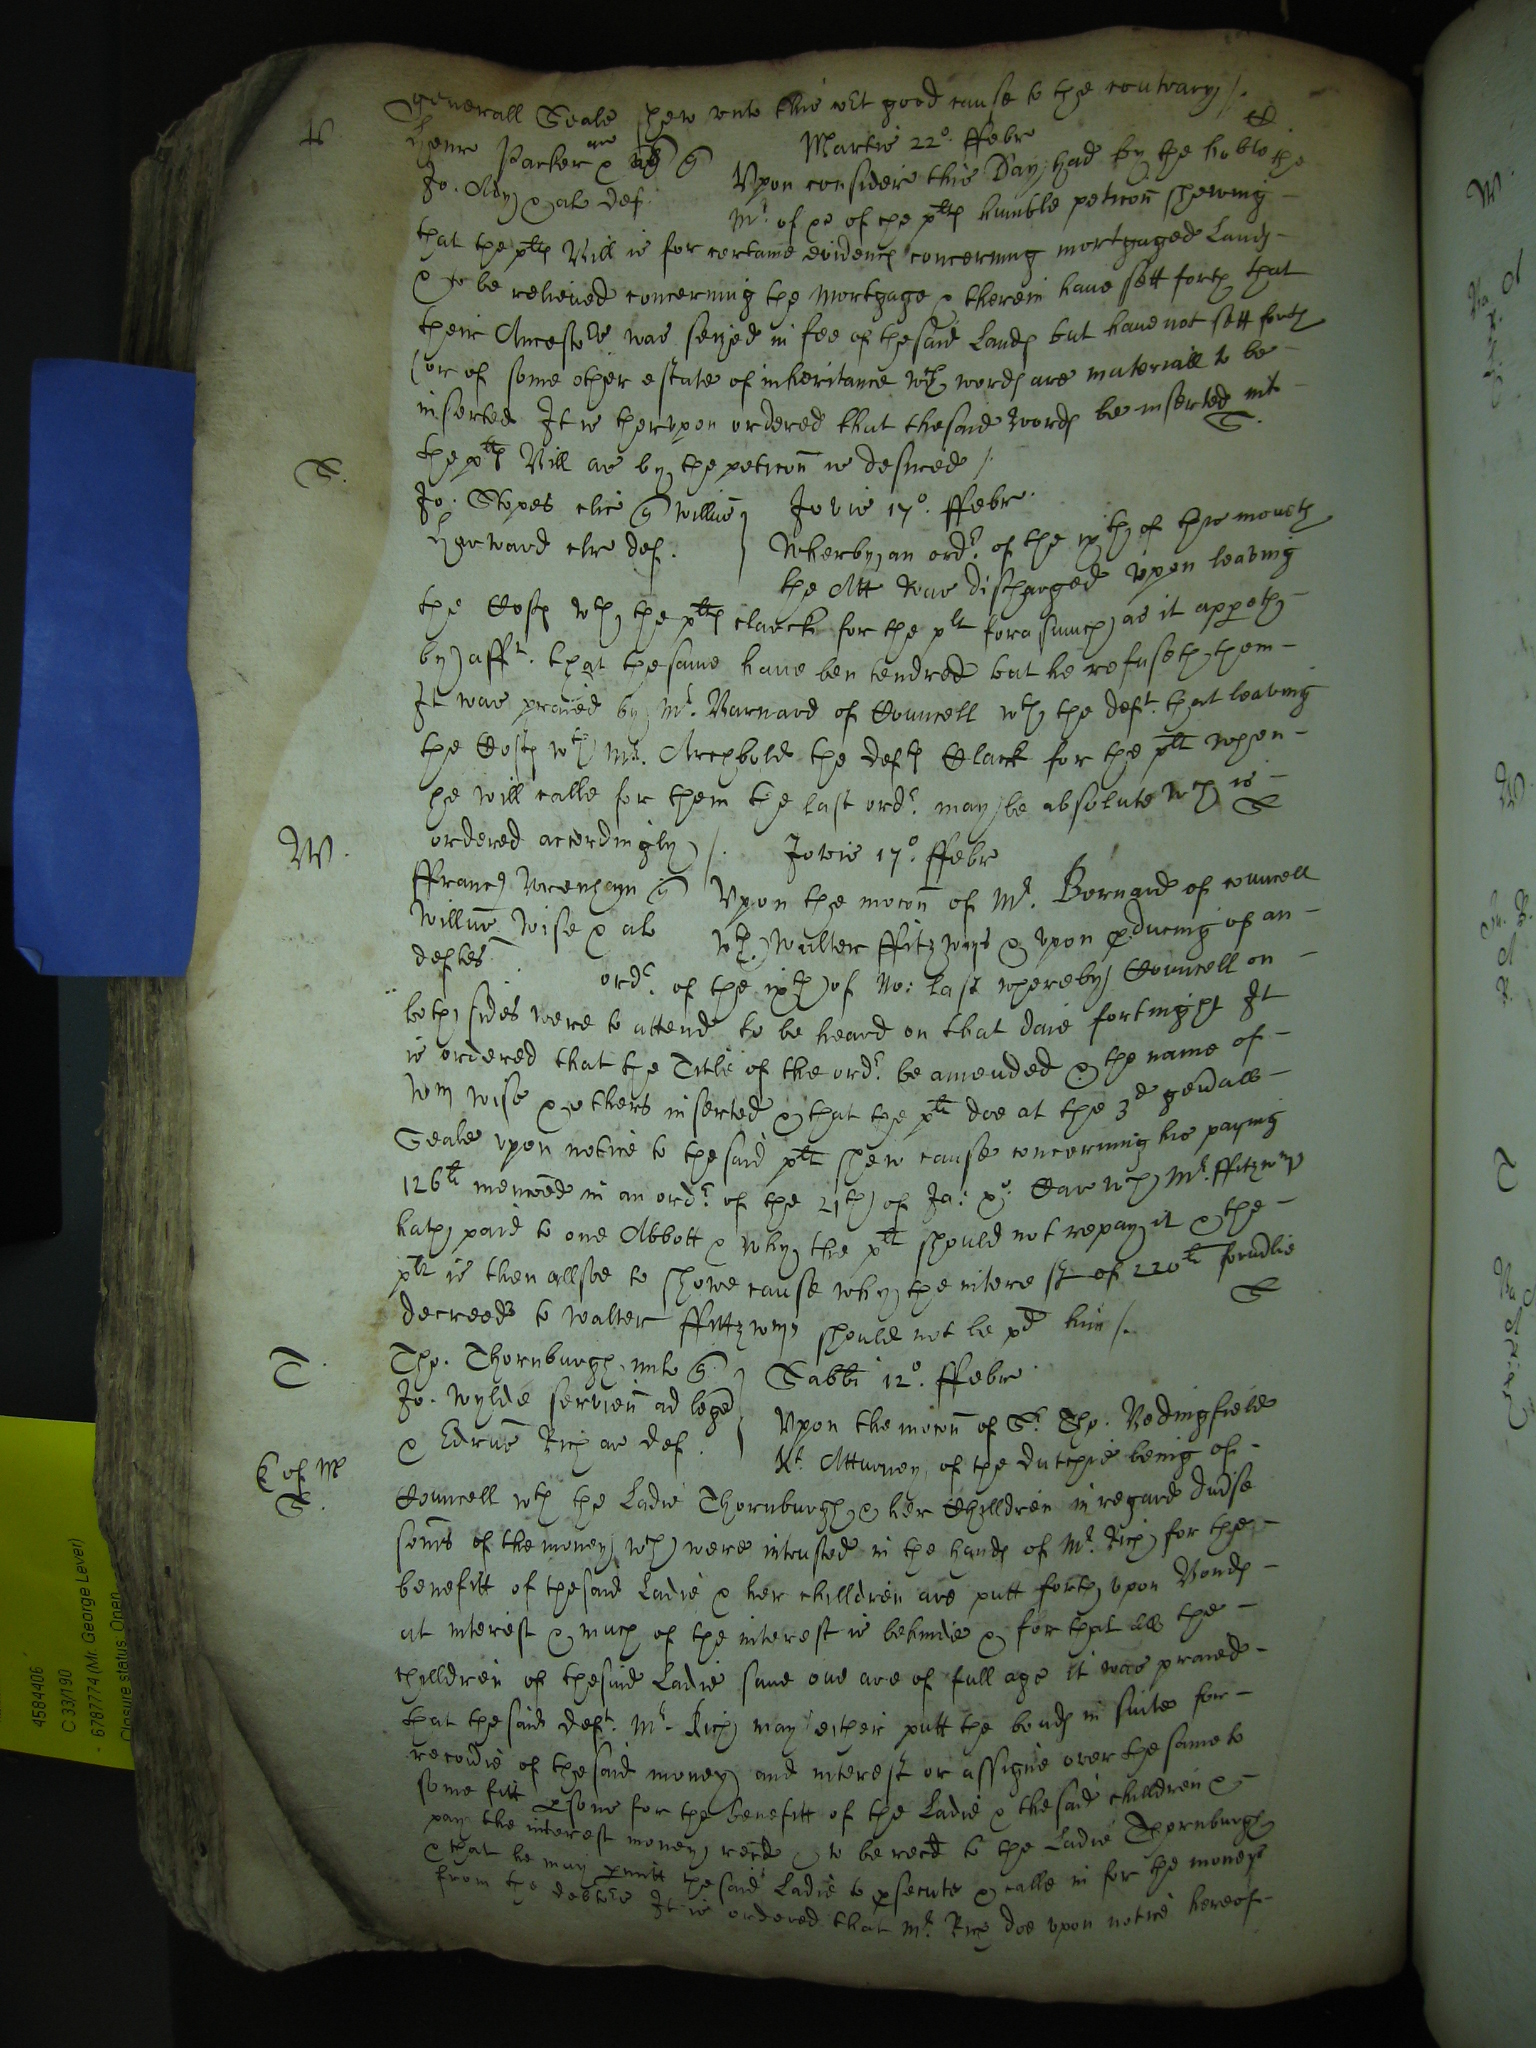 generall Seale shew unto this Co:rt good cause to the contrary /.
P.
Henr Parker ar &
Martis 22o. ffebr
Jo. Ady & al def.
Upon consider this Day had by the ho:ble the
Mr. of ye of the plts humble peticon shewing
that the plts Bill is for certaine evidences concerning mortgaged Lands
& to be relieved concerning the mortgage & therein have sett forth that
their Ancestor was seized in fee of the said Lands but have not sett forth
(or of some other estate of inheritance wch words are materiall to be
inserted It is therupon ordered that the said words be inserted into
the plts Bill as by the peticon is desired /
S.
Jo. Stopes clic
Jovis 17o. ffebr.
Harward clre def.
Wherby an ordr. of the ixth of this moneth
the Att was discharged upon leaving
the Costs wth the plts clarck for the plt forasmuch as it appeth
by afft. that the same have ben tendred but he refuseth them
It was praied by Mr. Barnard of Councell wth the deft. that leaving
the Costs wth Mr. Archbold the defts Clark for the plt when
he will calle for them the last ordr. may be absolute wch is
ordered accordingly /.
W.
Jovis 17o. ffebr
Upon the mocon of Mr. Bernard of councell
Willm Wise & als
wth Walter ffitzwms & upon pducing of an
deftes
ordr. of the ixth of No: last whereby Councell on
both sides were to attend to be heard on that daie fortnight It
is ordered that the Title of the ordr. be amended & the name of
Wm Wise & others inserted & that the plt doe at the 3d genall
Seale upon notice to the said plt shew cause concerning his paying
126li menconed in an ordr. of the 21th of Ja: xo. Car wch Mr. ffitzwms
hath paid to one Abbott & why the plt should not repay it & the
plt is then allsoe to showe cause why the interest of 220li formlie
decreed to Walter ffittzwms should not be pd him /.
T.
Tho. Thornburgh mil
Sabbi 12o. ffebr.
Jo. Wylde servien ad legem
Upon the mocon of Sr. Tho. Bedingfield
& Edrus Rich ar def.
Kt. Atturney of the dutchie being of
Councell wth the Ladie Thornburgh & her Chilldren in regard divise
somes of the money wch were intrusted in the hands of Mr. Rich for the
benefitt of the said Ladie & her chilldren are putt forth upon Bonds
at interest & much of the interest is behinde & for that all the
chilldren of the said Ladie save one are of full age it was praied
that the said deft. Mr. Rich may either putt the bonds in suite for
recovie of the said money and interest or assigne over the same to
some fitt psons for the benefitt of the Ladie & the said chilldren &
pay the interest money recd & to be recd to the Ladie Thornburgh
& that he may pmitt the said Ladie to psecute & calle in for the moneys
from the debtors It is ordered that Mr. Rich doe upon notice hereof
4584406
C 33/190
6787774 (Mr. George Lever)
Closure status: Open